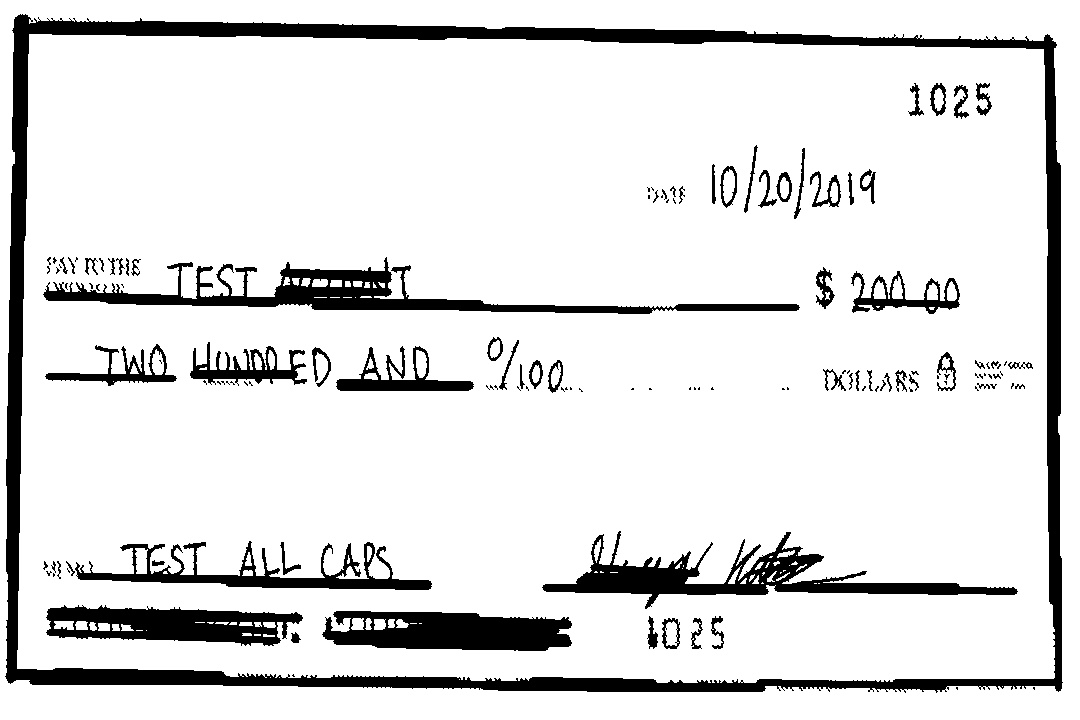 1025
DATE 10/20/2019
PAY TO THE
ORDER OF TEST $ 200.00
TWO HUNDRED AND 0/100 DOLLARS
MEMO TEST ALL CAPS
1025